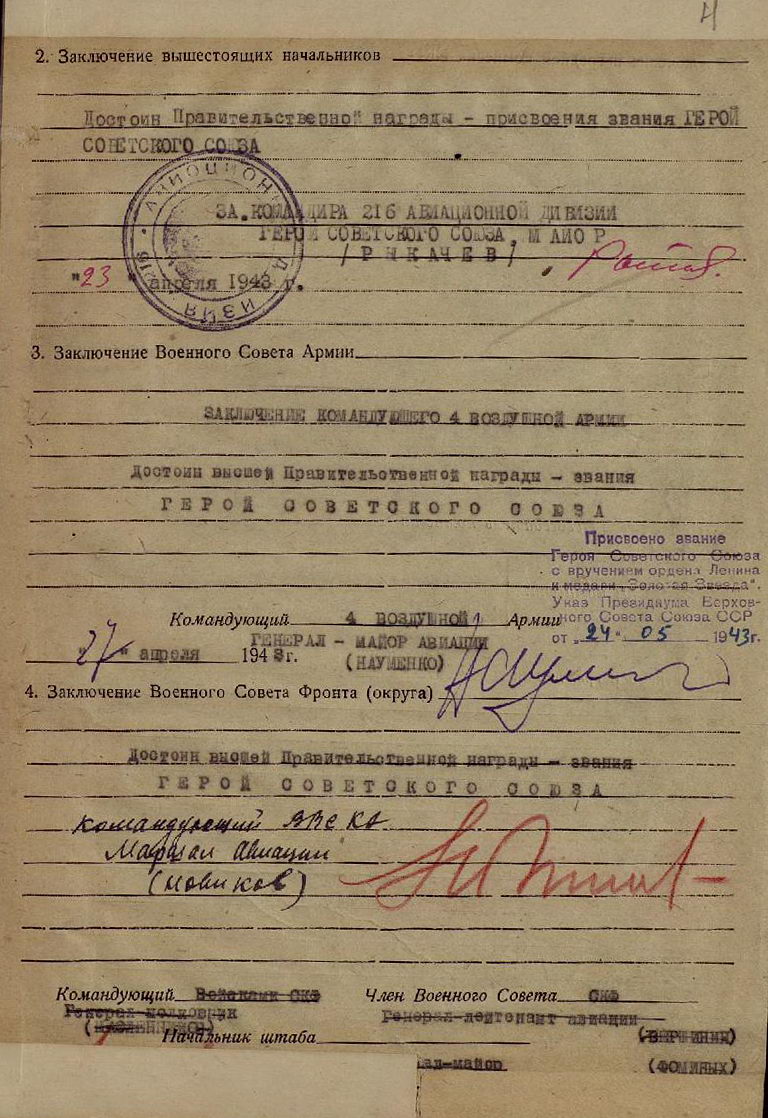 4
2. Заключение вышестоящих начальников
Достоин Правительственной награды - присвоения звания ГЕРОЙ
СОВЕТСКОГО СОЮЗА
ЗА.КОМАНДИРА 216 АВИАЦИОННОЙ ДИВИЗИИ
ГЕРОЙ СОВЕТСКОГО СОЮЗА, МАЙОР
/РЫКАЧЕВ/
"23" апреля 1943 г.
3. Заключение Военного Совета Армии
ЗАКЛЮЧЕНИЕ КОМАНДУЮЩЕГО 4 ВОЗДУШНОЙ АРМИИ
Достоин высшей Правительственной награды - звания
ГЕРОЙ СОВЕТСКОГО СОЮЗА
Присвоено звание
Героя Советского Союза
с вручением ордена Ленина
и медали „Золотая Звезда".
Указ Президиума Верхов-
ного Совета Союза ССР
от „24" 05 1943г.
Командующий 4 ВОЗДУШНОЙ Армии
ГЕНЕРАЛ - МАЙОР АВИАЦИИ
"27" апреля 1943г. (НАУМЕНКО)
4. Заключение Военного Совета Фронта (округа)
Достоин высшей Правительственной награды - звания
ГЕРОЙ СОВЕТСКОГО СОЮЗА
Командующий ВВС КА
Маршал Авиации
(Новиков)
Командующий Войсками СКФ Член Военного Совета СКФ
Генерал-полковник Генерал-лейтенант авиации
Начальник штаба (ВЕРШИНИН)
ал-майор (ФОМИНЫХ)